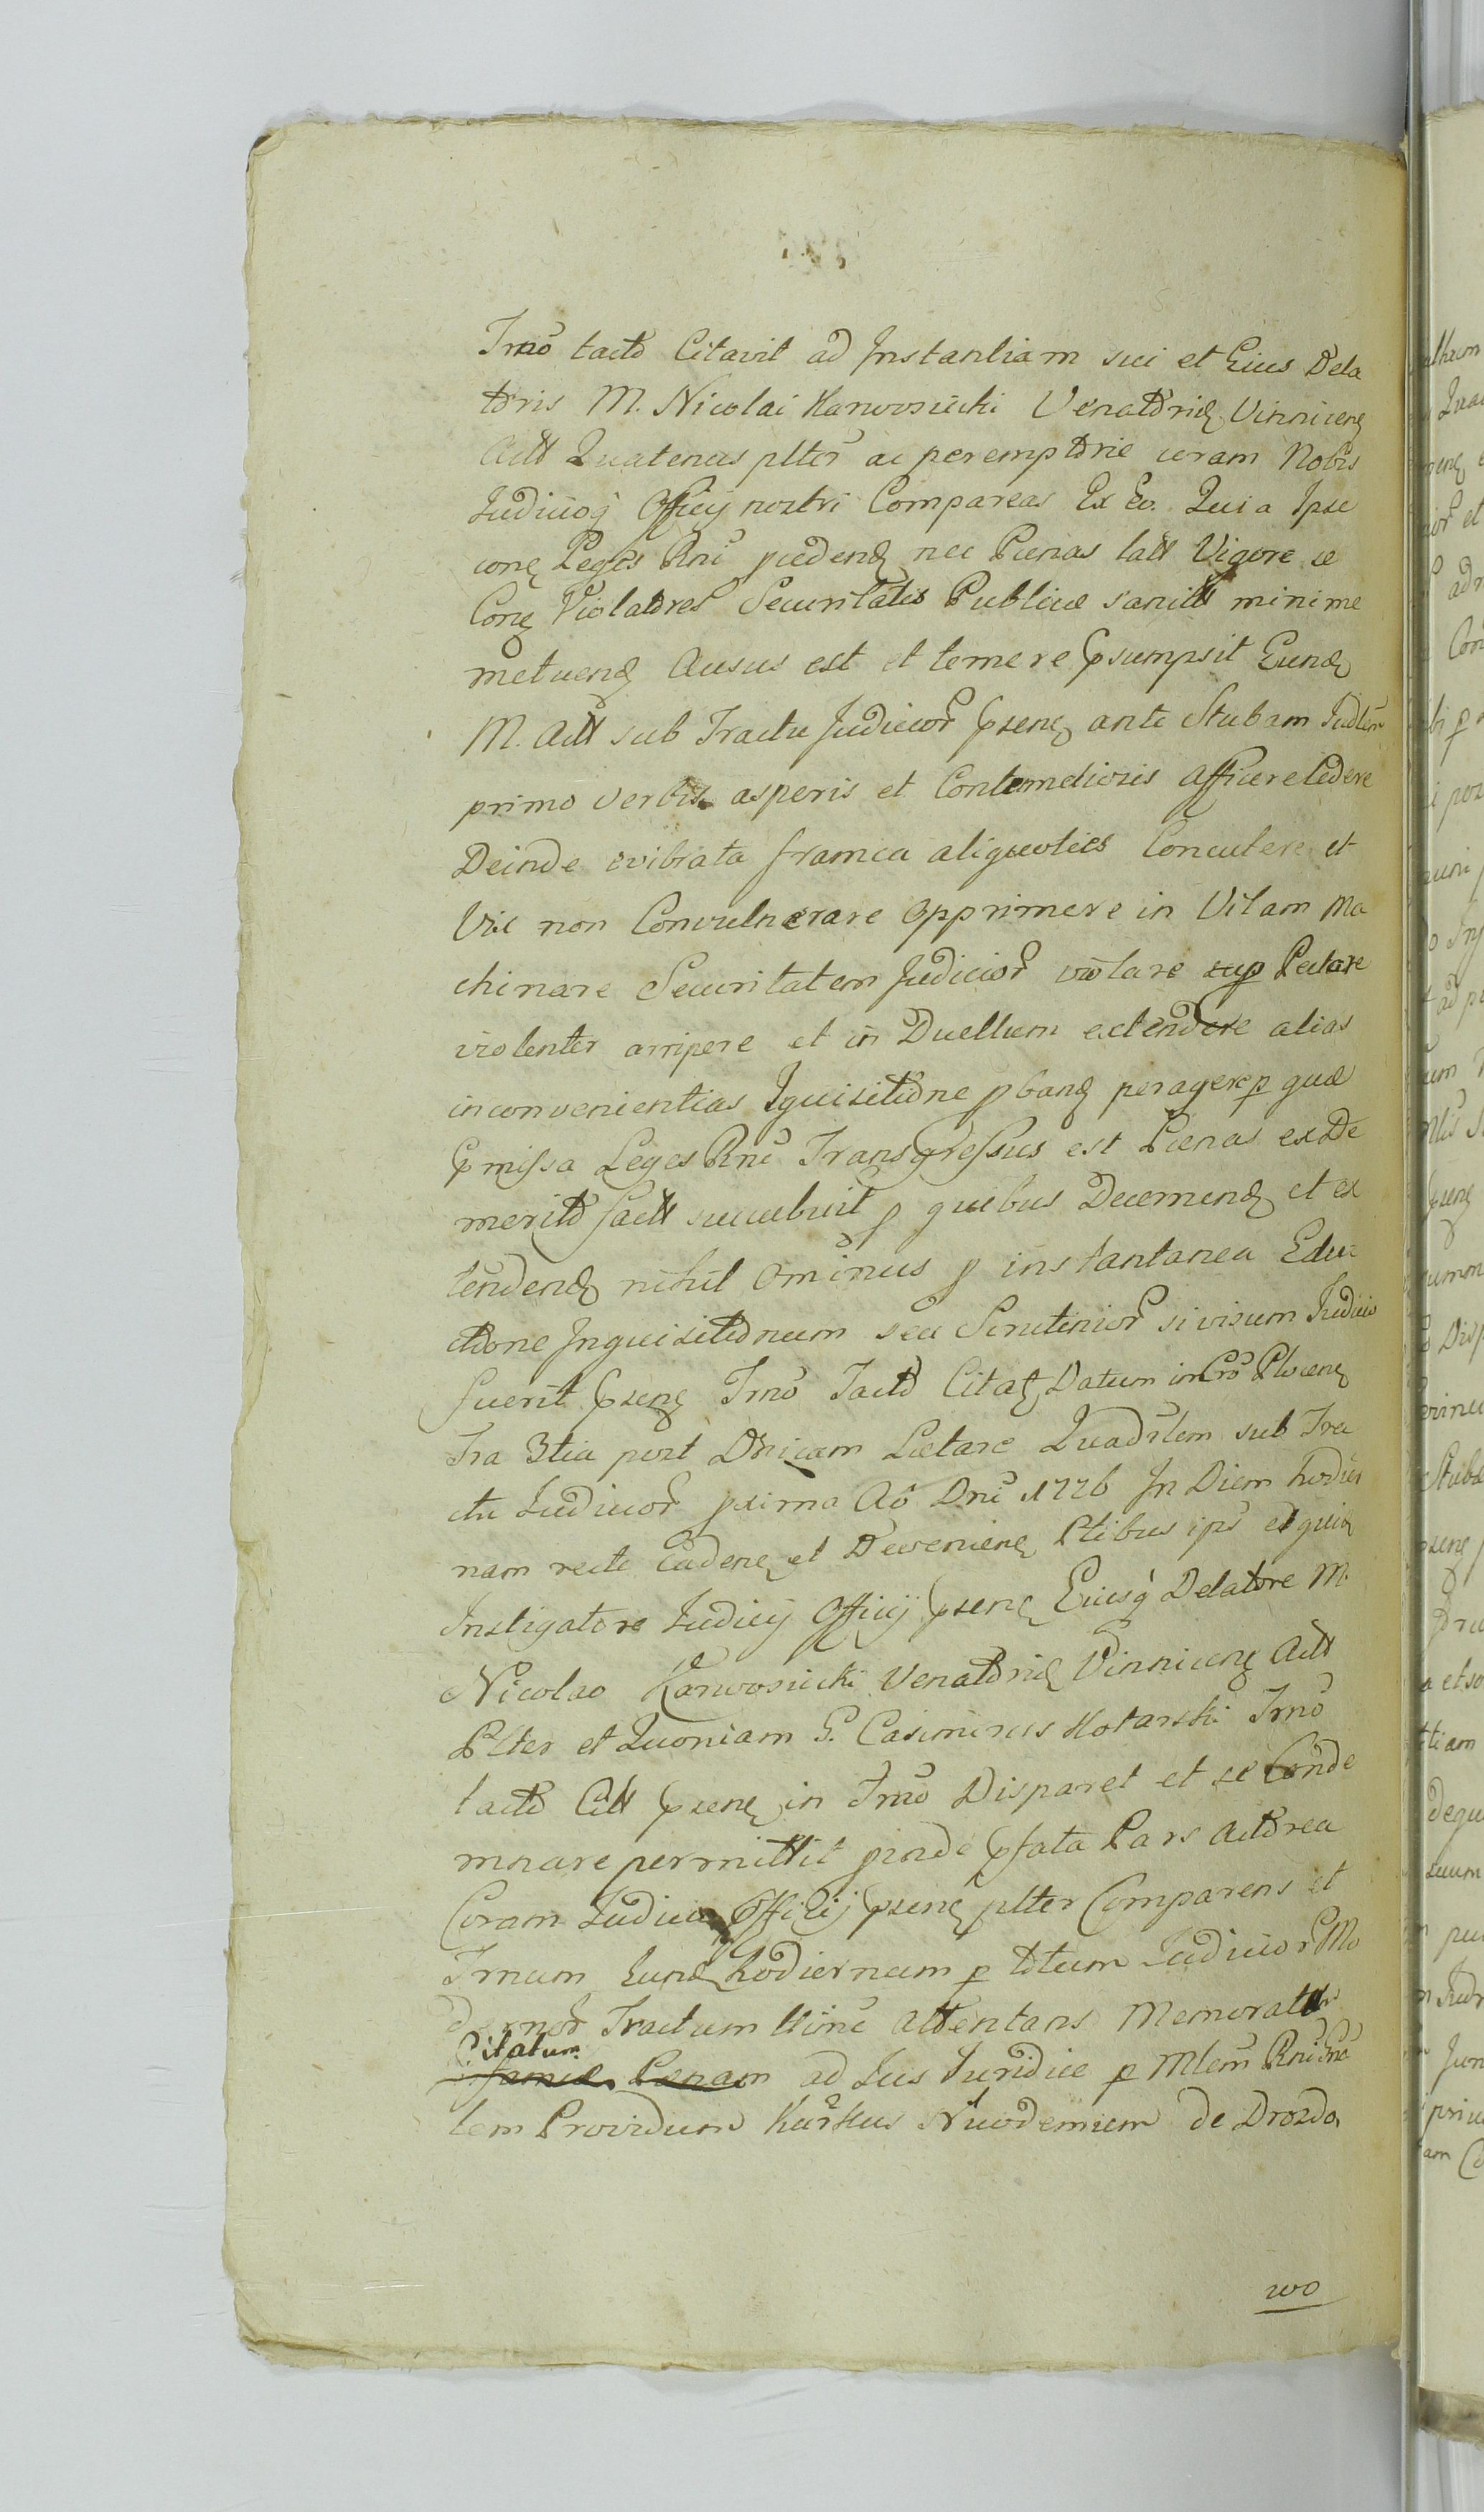 Tmo tacto Citavit ad Instantiam sui et Eius Dela
toris M. Nicolai Karwosiecki Venatorid Vinnicen
Actt Quatenus plter ac peremptorie coram Nobis
Judicioq Officij nostri Compareas Ex Eo. Quia Ipse
con Leges Rni pcedend nec Pænas latt Vigore
Con Violatores Securitatis Publicæ sancitt minime
metuend Ausus est et temere psumpsit Eund
M. Actt sub Tractu Judicior psen ante Stubam Judlem
primo verbis asperis et Contumeliosis afficere ledere
Deinde evibrata framea aliquoties Concutere et
Vix non Convulnerare opprimere in Vitam Ma
chinare Securitatem Judicior violare Pectore
violenter arripere et in Duellum extendere alias
inconvenientias Iquisitione pband peragere p quæ
pmissa Leges Rni Transgressus est Pænas ex De
merito factt succubuit p quibus Decernend et ex
tendend nihil Ominus p instantanea Edu
ctione Inquisitionum seu Scrutinior si visum Judicio
fuerit psen Tmo Tacto Citat Datum in Cro Plocen
Fra 3tia post Dnicam Lætare Quadrlem sub Tra
ctu Judicior pxima Ao Dni 1776 In Diem hodier
nam recte Caden et Devenien Ptibus ips et quid
Instigatore Judicij Officij psen Eiusq Delatore M.
Nicolao Karwosiecki Venatorid Vinnicen Actt
Plter et Quoniam G. Casimirus Kotarski Tmo
tacto Citt psen in Tmo Disparet et se Conde
mnare permittit pinde pfata Pars Actorea
Coram Judicio Officij psen plter Comparens et
Tmum hund hodiernum p totum Judicior Mo
dernor Tractum Hinc attentans Memoratt
Citatum
Pænam ad Jus Juridice p Mlem Rni Gna
lem Providum Nicodemum de Drozdo
wo